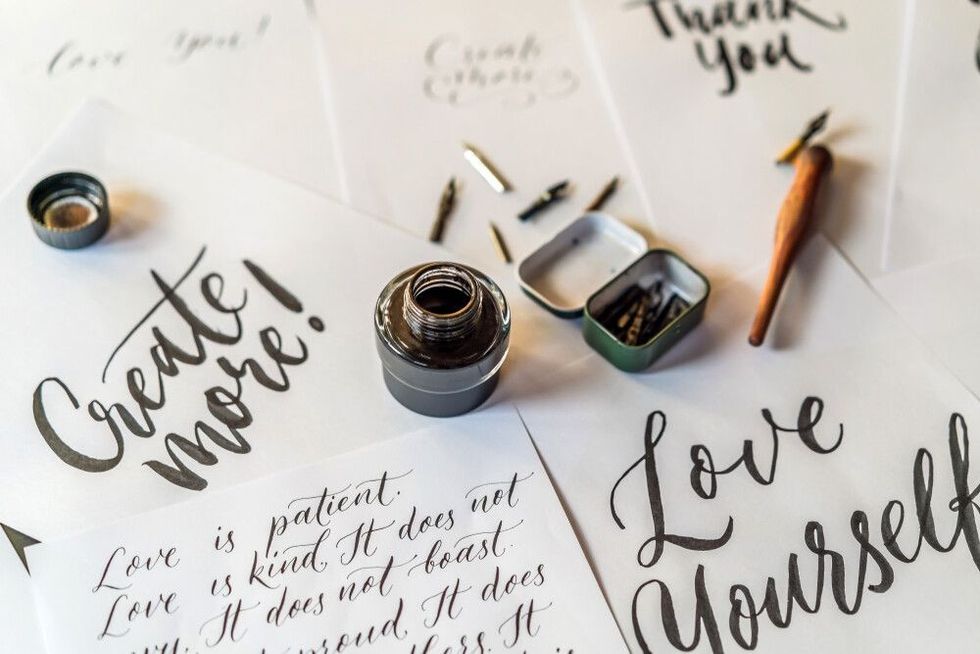 Love You!
Create
more
Thank
You
Create
more!
Love is patient.
Love is kind. It does not
It does not boast.
proud. It does
It
Love
Yourself